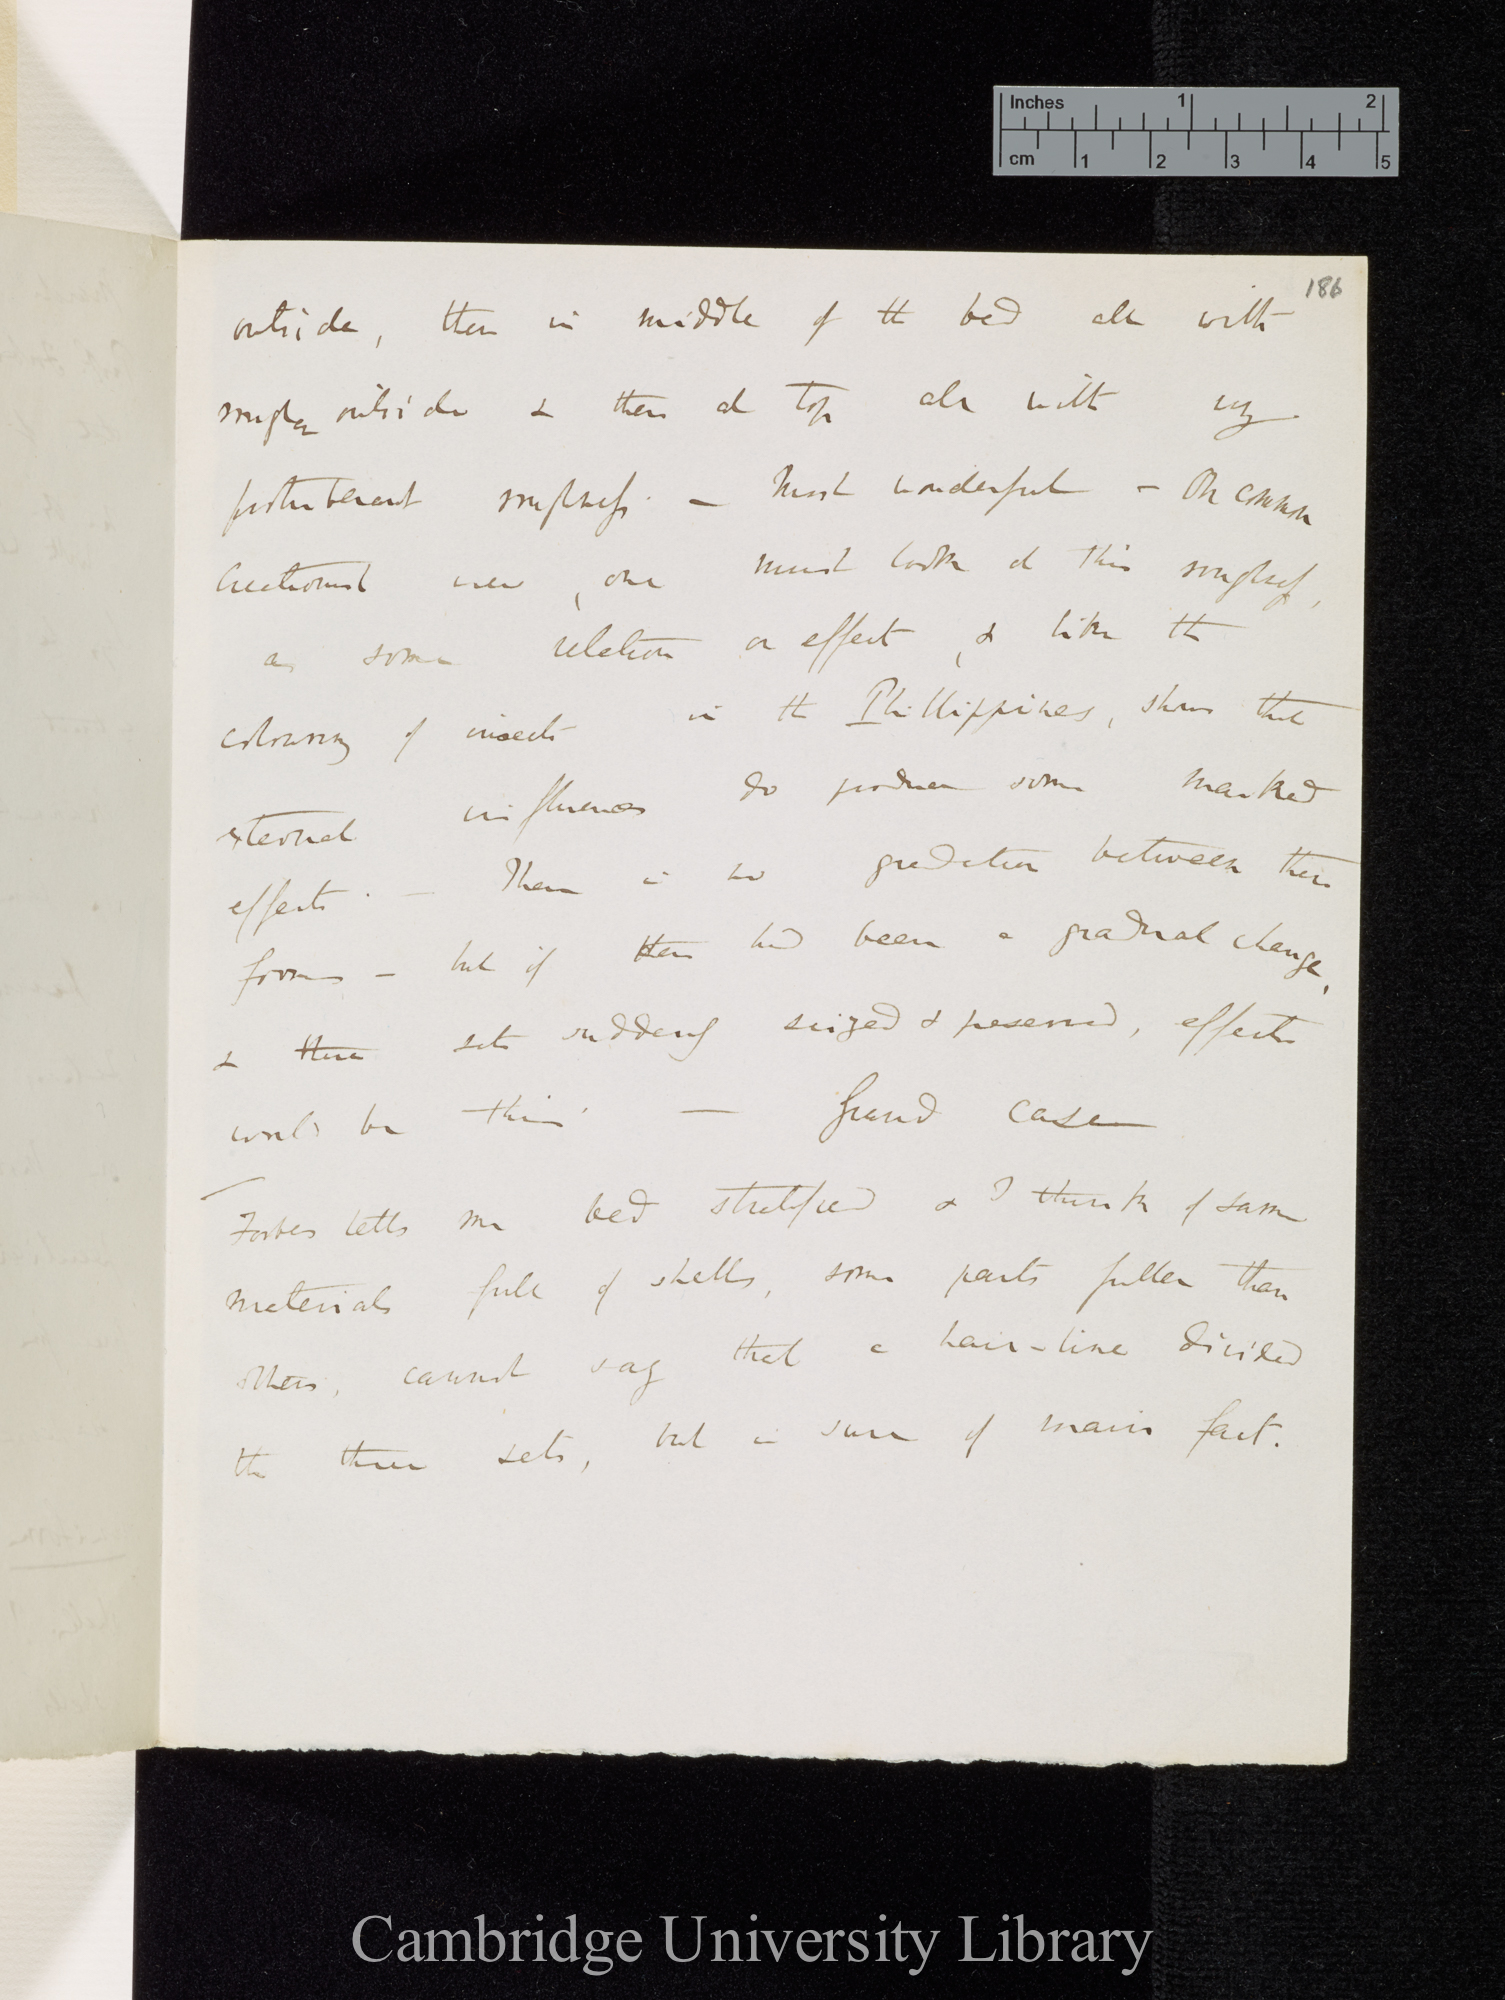 Inches 1 2
cm 1 2 3 4 5
186
outside, then in middle of the bed all with
rougher outside & then at top all with very
protuberant roughness. — Most wonderful — On common
Creationist view, one must look at this roughness,
as some relation or effect, & like the
colouring of insects in the Phillippines, shows that
external influences do produce some marked
effects. — There is no gradation between these
forms — but if there had been a gradual change,
& three sets suddenly seized & preserved, effects
would be this. — Grand case
Forbes tells me bed stratified & I think of same
materials full of shells, some parts fuller than
others, cannot say that a hair-line divided
the three sets, but is sure of main fact.
Cambridge University Library